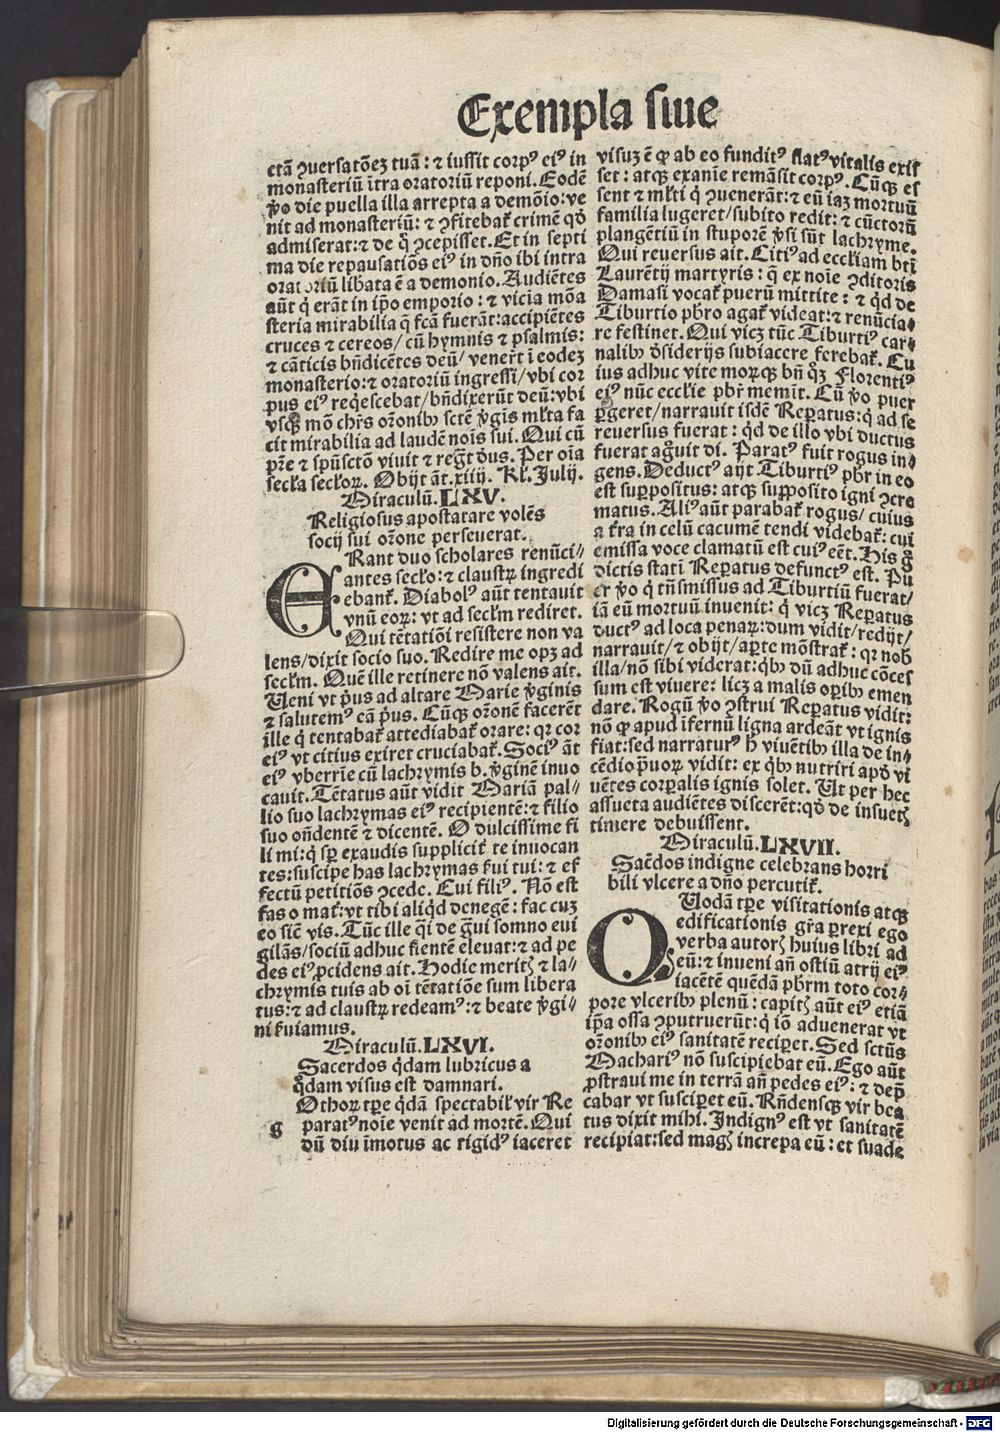 Exempla siue
ctã ꝯuersatõeꝫ tuã: ⁊ iussit corpꝰ eiꝰ in
monasteriũ ĩtra oratoriũ reponi. Eodẽ
ꝟo die puella illa arrepta a demõio: ve
nit ad monasteriũ: ⁊ ꝯfitebat̃ crimẽ qď
admiserat: ⁊ de q̃ ꝯcepisset. Et in septi
ma die repausatiõs eiꝰ in dño ibi intra
oratoriũ libata ẽ a demonio. Audiẽtes
aũt q̇ erãt in ip̃o emporio: ⁊ vicia mõa
steria mirabilia q̃ fc̃a fuerãt: accipiẽtes
cruces ⁊ cereos/ cũ hymnis ⁊ psalmis:
⁊ cãticis bñdicẽtes deũ/ vener̃t ĩ eodeꝫ
monasterio: ⁊ oratoriũ ingressi/ vbi cor
pus eiꝰ req̇escebat/ bñdixerũt deũ: vbi
vsqꝫ mõ chr̃s oꝛõnibꝰ sctẽ ꝟgĩs ml̃ta fa
cit mirabilia ad laudẽ noĩs sui. Qui cũ
pr̃e ⁊ sp̃usctõ viuit ⁊ reg̃t de̾us. Per oĩa
secl̃a secl̃oꝝ. Obijt ãt.xiiij. Kl̃. Julij.
Miraculũ.LXV.
Religiosus apostatare volẽs
socij sui oꝛõne perseuerat.
ERant duo scholares renũci⸗
antes secl̃o: ⁊ claustꝝ ingredi
ebant̃. Diabolꝰ aũt tentauit
vnũ eoꝝ: vt ad secl̃m rediret.
Qui tẽtatiõi resistere non va
lens/ dixit socio suo. Redire me opꝫ ad
secl̃m. Quẽ ille retinere nõ valens ait.
Veni vt pꝰus ad altare Marie ꝟginis
⁊ salutemꝰ eã pꝰus. Cũqꝫ oꝛõnẽ facerẽt
ille q̇ tentabat̃ attediabat̃ orare: qꝛ cor
eiꝰ vt citius exiret cruciabat̃. Sociꝰ ãt
eiꝰ vberriẽ cũ lachrymis b. ꝟginẽ inuo
cauit. Tẽtatus aũt vidit Mariã pal⸗
lio suo lachrymas eiꝰ recipientẽ: ⁊ filio
suo oñdentẽ ⁊ dicentẽ. O dulcissime fi
li mi: q̇ sꝑ exaudis supplicit̃ te inuocan
tes: suscipe has lachrymas s̾ui tui: ⁊ ef
fectũ petitiõs ꝯcede. Cui filiꝰ. Nõ est
fas o mat̃: vt tibi aliq̇d denegẽ: fac cuꝫ
eo sic̃ vis. Tũc ille q̇ de g̾ui somno eui
gilãs/ sociũ adhuc flentẽ eleuat: ⁊ ad pe
des eiꝰ ꝓcidens ait. Hodie meritꝭ ⁊ la⸗
chrymis tuis ab oĩ tẽtatiõe sum libera
tus: ⁊ ad claustꝝ redeamꝰ: ⁊ beate ꝟgi⸗
ni s̾uiamus.
Miraculũ.LXVI.
Sacerdos q̇dam lubricus a
q̊dam visus est damnari.
OThoꝝ tꝑe q̇dã spectabil̃ vir Re
paratꝰ noĩe venit ad mortẽ. Qui
dũ diu ĩmotus ac rigidꝰ iaceret
g
visuꝫ ẽ qꝛ ab eo funditꝰ flatꝰ vitalis exis
set: atqꝫ exanĩe remãsit corpꝰ. Cũqꝫ es
sent ⁊ ml̃ti q̇ ꝯuenerãt: ⁊ eũ iaꝫ mortuũ
familia lugeret/ subito redit: ⁊ cũctorũ
plangẽtiũ in stuporẽ ꝟsi sũt lachryme.
Qui reuersus ait. Citiꝰ ad eccl̃iam bt̃i
Laurẽtij martyris: q̃ ex noĩe ꝯditoris
Damasi vocat̃ puerũ mittite: ⁊ q̇d de
Tiburtio pb̃ro agat̃ videat: ⁊ renũcia⸗
re festinet. Qui vicꝫ tũc Tiburtiꝰ car⸗
nalibꝰ de̾siderijs subiacere ferebat̃. Cu
ius adhuc vite morũqꝫ bñ q̊qꝫ Florentiꝰ
eiꝰ nũc eccl̃ie pb̃r memĩt. Cũ ꝟo puer
ꝑgeret/ narrauit isdẽ Reparatus: q̇ ad se
reuersus fuerat: q̇d de illo vbi ductus
fuerat ag̾uit di. Paratꝰ fuit rogus in⸗
gens. Deductꝰ aũt Tiburtiꝰ pb̃r in eo
est suꝑpositus: atqꝫ supposito igni ꝯcre
matus. Aliꝰ aũt parabat̃ rogus/ cuius
a t̃ra in celũ cacumẽ tendi videbat̃: cui
emissa voce clamatũ est cuiꝰ eẽt. His g̊
dictis statĩ Reparatus defunctꝰ est. Pu
er ꝟo q̇ tñsmissus ad Tiburtiũ fuerat/
iã eũ mortuũ inuenit: q̇ vicꝫ Reparatus
ductꝰ ad loca penaꝝ: dum vidit/ redijt/
narrauit/ ⁊ obijt/ aꝑte mõstrat̃: qꝛ nob̃
illa/ nõ sibi viderat: q̇bꝰ dũ adhuc cõces
sum est viuere: licꝫ a malis oꝑibꝰ emen
dare. Rogũ ꝟo ꝯstrui Reparatus vidit:
nõ qꝛ apud ĩfernũ ligna ardeãt vt ignis
fiat: sed narraturꝰ h̾ viuẽtibꝰ illa de in⸗
cẽdio p̃uoꝝ vidit: ex q̇bꝰ nutriri apď vi
uẽtes corꝑalis ignis solet. Vt per hec
assueta audiẽtes discerẽt: qď de insuetꝭ
timere debuissent.
Miraculũ.LXVII.
Sac̃dos indigne celebrans horri
bili vlcere a dño percutit̃.
QUodã tꝑe visitationis atqꝫ
edificationis gr̃a ꝑrexi ego
verba autorꝭ huius libri ad
eũ: ⁊ inueni añ ostiũ atrij eiꝰ
iacẽtẽ quẽdã pb̃rm toto cor⸗
pore vlceribꝰ plenũ: capitꝭ aũt eiꝰ etiã
ip̃a ossa ꝯputruerũt: q̇ iõ aduenerat vt
oꝛõnibꝰ eiꝰ sanitatẽ reciꝑet. Sed sctũs
Machariꝰ nõ suscipiebat eũ. Ego aũt
ꝓstraui me in terrã añ pedes eiꝰ: ⁊ dep̃
cabar vt susciꝑet eũ. Rñdensqꝫ vir bea
tus dixit mihi. Indignꝰ est vt sanitatẽ
recipiat: sed magꝭ increpa eũ: et suade
Digitalisierung gefördert durch die Deutsche Forschungsgemeinschaft - DFG